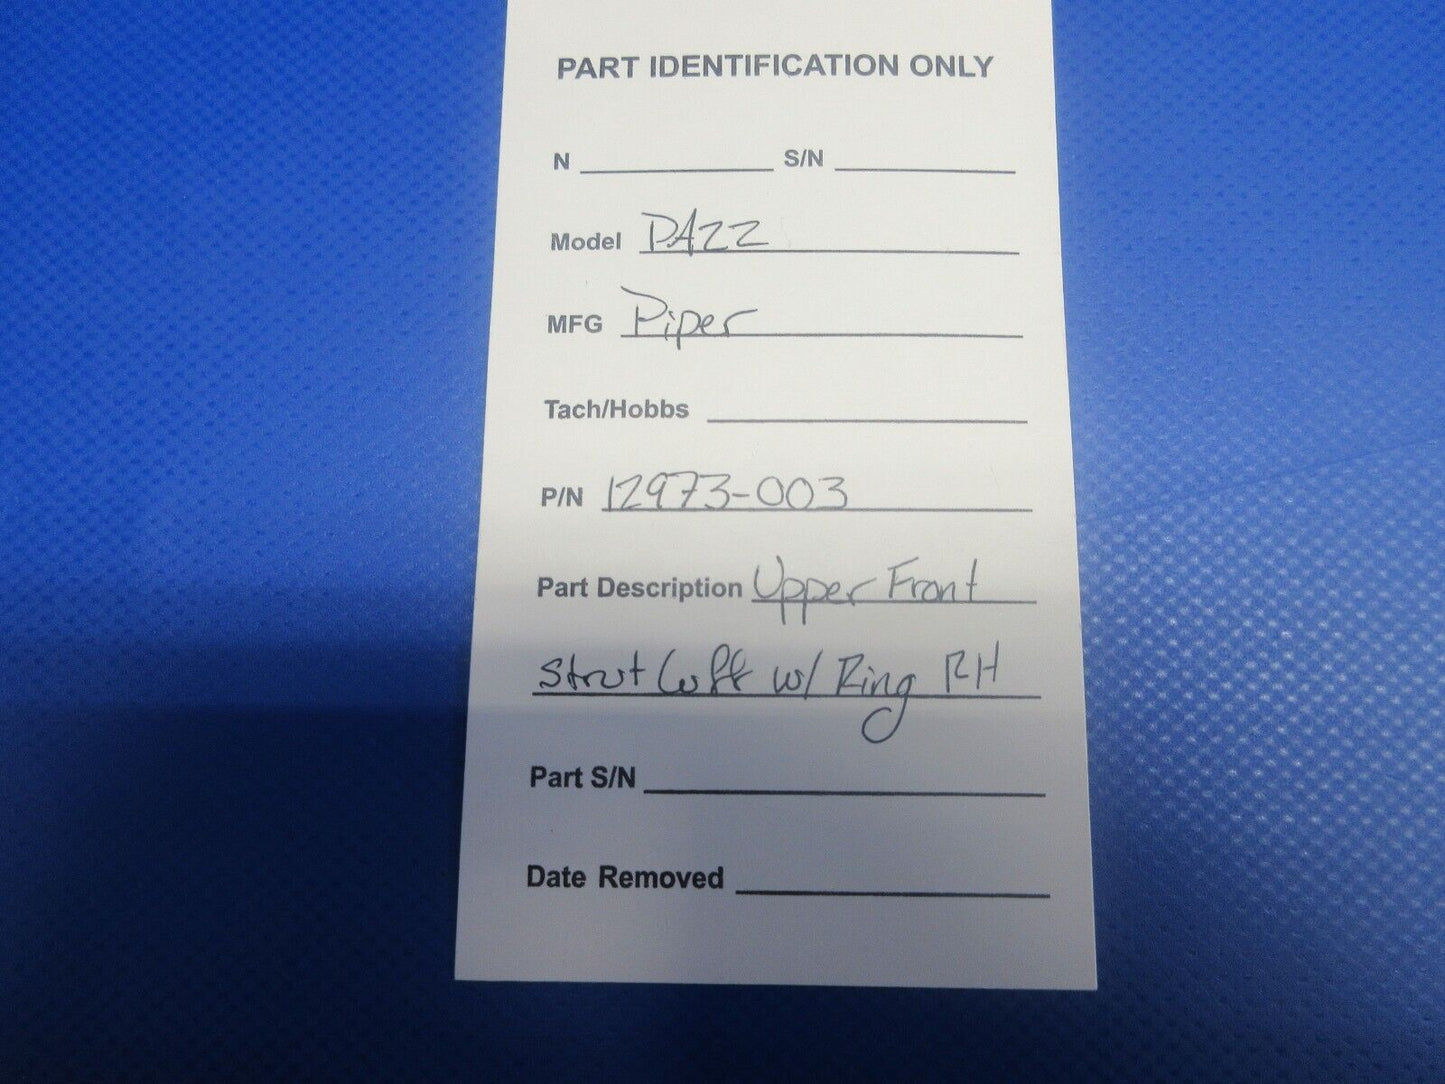 PART IDENTIFICATION ONLY
N S/N
Model PA22
MFG Piper
Tach/Hobbs
P/N 12973-003
Part Description Upper Front
Strut Cuff w/ Ring RH
Part S/N
Date Removed